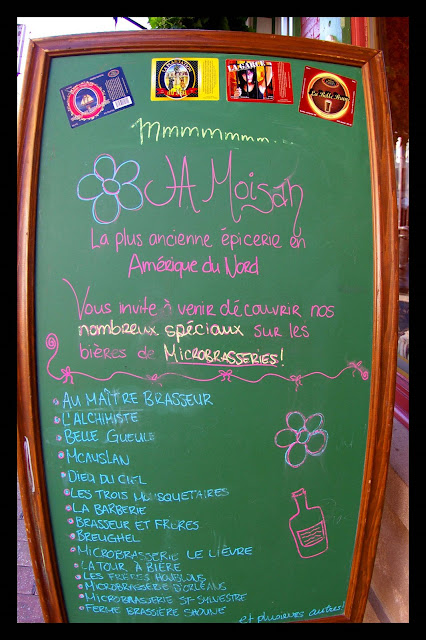 LA GARCE
La Belle Brune
Mmmmmmm...
JA Moisan
La plus ancienne épicerie en
Amérique du Nord
Vous invite à venir découvrir nos
nombreux spéciaux sur les
bières de MICROBRASSERIES!
AU MAÎTRE BRASSEUR
L'ALCHIMISTE
BELLE GUEULE
MCAUSLAN
DIEU DU CIEL
LES TROIS MOUSQUETAIRES
LA BARBERIE
BRASSEUR ET FRÈRES
BREUGHEL
MICROBRASSERIE LE LIÈVRE
LA TOUR À BIÈRE
LES FRÈRES HOUBLONS
MICROBRASSERIE D'ORLÉANS
MICROBRASSERIE ST-SYLVESTRE
FERME BRASSIÈRE SAOUNE
et plusieurs autres!